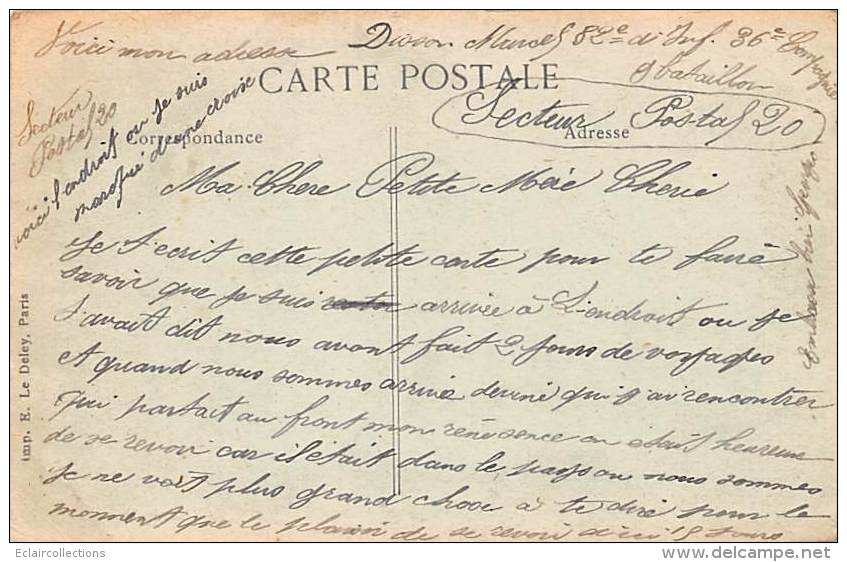 Voici mon adresse Marcel 82e d'Inf. 36e Compagnie
9 bataillon
CARTE POSTALE
Secteur Postal 20
Secteur
Postal 20
voici l'endroit ou je suis
marqué d'une croix
Correspondance
Adresse
Ma Chere Petite Meré Cherie
Je t'ecrit cette petite carte pour te fairé
savoir que je suis arrivée à L'endroit ou je
t'avait dit nous avont fait 2 jours de voyages
et quand nous sommes arrivé deviné qui j'ai rencontrer
qui partait au front mon on était heureux
de se revoir car il était dans le pays ou nous sommes
Je ne voit plus grand chose à te diré pour le
moment que le plaisir de se revoir d'ici 15 Jours
Imp. E. Le Deley, Paris
Eclaircollections
©www.delcampe.net